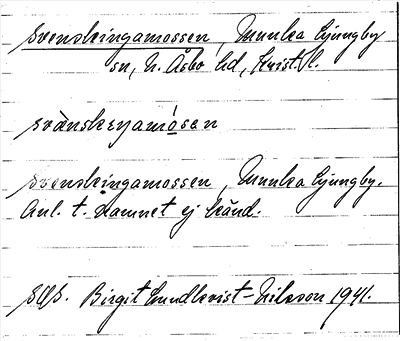 Svenskingamossen, Munka Ljungby
sn, N. Åsbo hd, Krist. l.
svänskenyamósen
Svenskingamossen, Munka Ljungby.
Anl. t. namnet ej känd.
Birgit Lundkvist-Nilsson 1941.